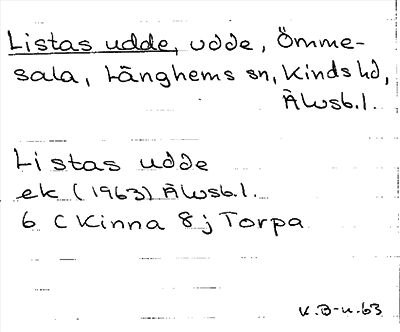 Listas udde, udde, Ömme-
sala, Länghems sn, Kinds hd,
Älvsb.l.
Listas udde
ek (1963) Älvsb.l.
6 C Kinna 8 j Torpa
K.B-n.63